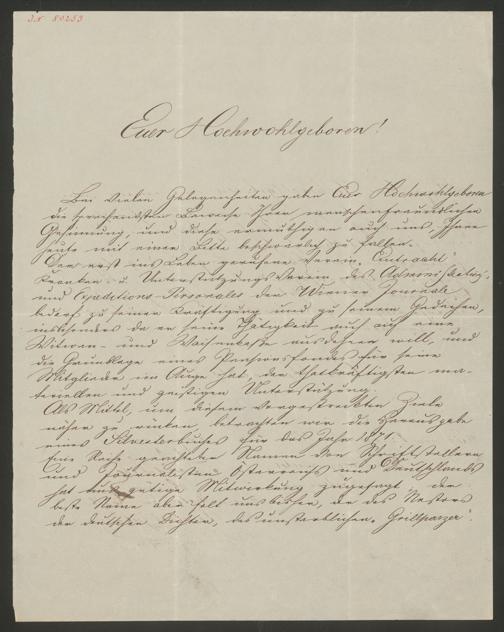 I.N. 80253
Euer Hochwohlgeboren!
Bei vielen Gelegenheiten gaben Euer Hochwohlgeboren
die sprechendsten Beweise Ihrer menschenfreundlichen
Gesinnung, und diese ermuthigen auch uns, Ihnen
heute mit einer Bitte beschwerlich zu fallen.
Der erst ins Leben gerufene Verein „Eintracht"
Kranken- u. Unterstützungs-Verein des Administrations-
und Expeditions-Personales der Wiener Journale
bedarf zu seiner Kräftigung und zu seinem Gedeihen,
insbesonders da er seine Thätigkeit auch auf eine
Witwen- und Waisenkasse ausdehnen will, und
die Grundlage eines Pensionsfondes für seine
Mitglieder im Auge hat, der thatkräftigsten ma-
teriellen und geistigen Unterstützung.
Als Mittel, um diesem vorgesteckten Ziele
näher zu rücken, betrachten wir die Herausgabe
eines Silvesterbuches für das Jahr 1871.
Eine Reihe geachteter Namen von Schriftstellern
und Journalisten Österreichs und Deutschlands
hat uns gütige Mitwirkung zugesagt, der
beste Name aber fehlt uns bisher, der des Nestors
der deutschen Dichter, des unsterblichen „Grillparzer".